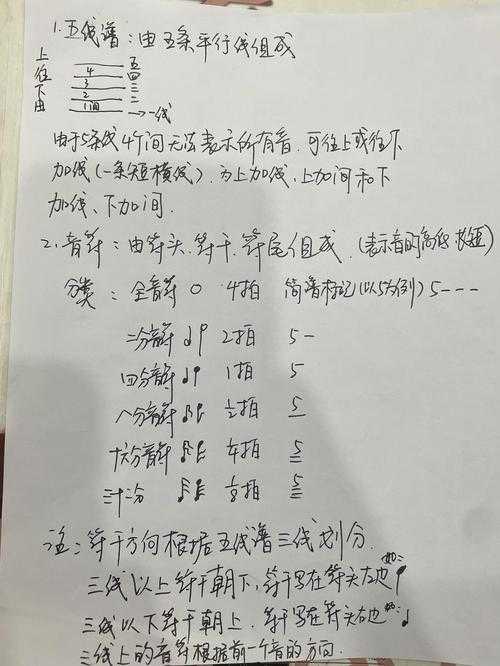 1.五线谱：由五条平行线组成
上往下由
五
4 四
3 三
2 二
1间 → 一线
由于5条线4个间无法表示所有音.可往上或往下
加线(一条短横线).为上加线、上加间和下
加线、下加间.
2.音符：由符头.符干.符尾组成.(表示音的高低长短)
分类：全音符 4拍 简谱标记(以5为例) 5---
二分音符 2拍 5-
四分音符 1拍 5
八分音符 1/2拍 5
十六分音符 1/4拍 5
三十二分 1/8拍 5
注：符干方向根据五线谱三线划分.
三线以上符干朝下,符干写在符头左边 如:
三线以下符干朝上.符干写在符头右边 如:
三线上的音符根据前一个音的方向.